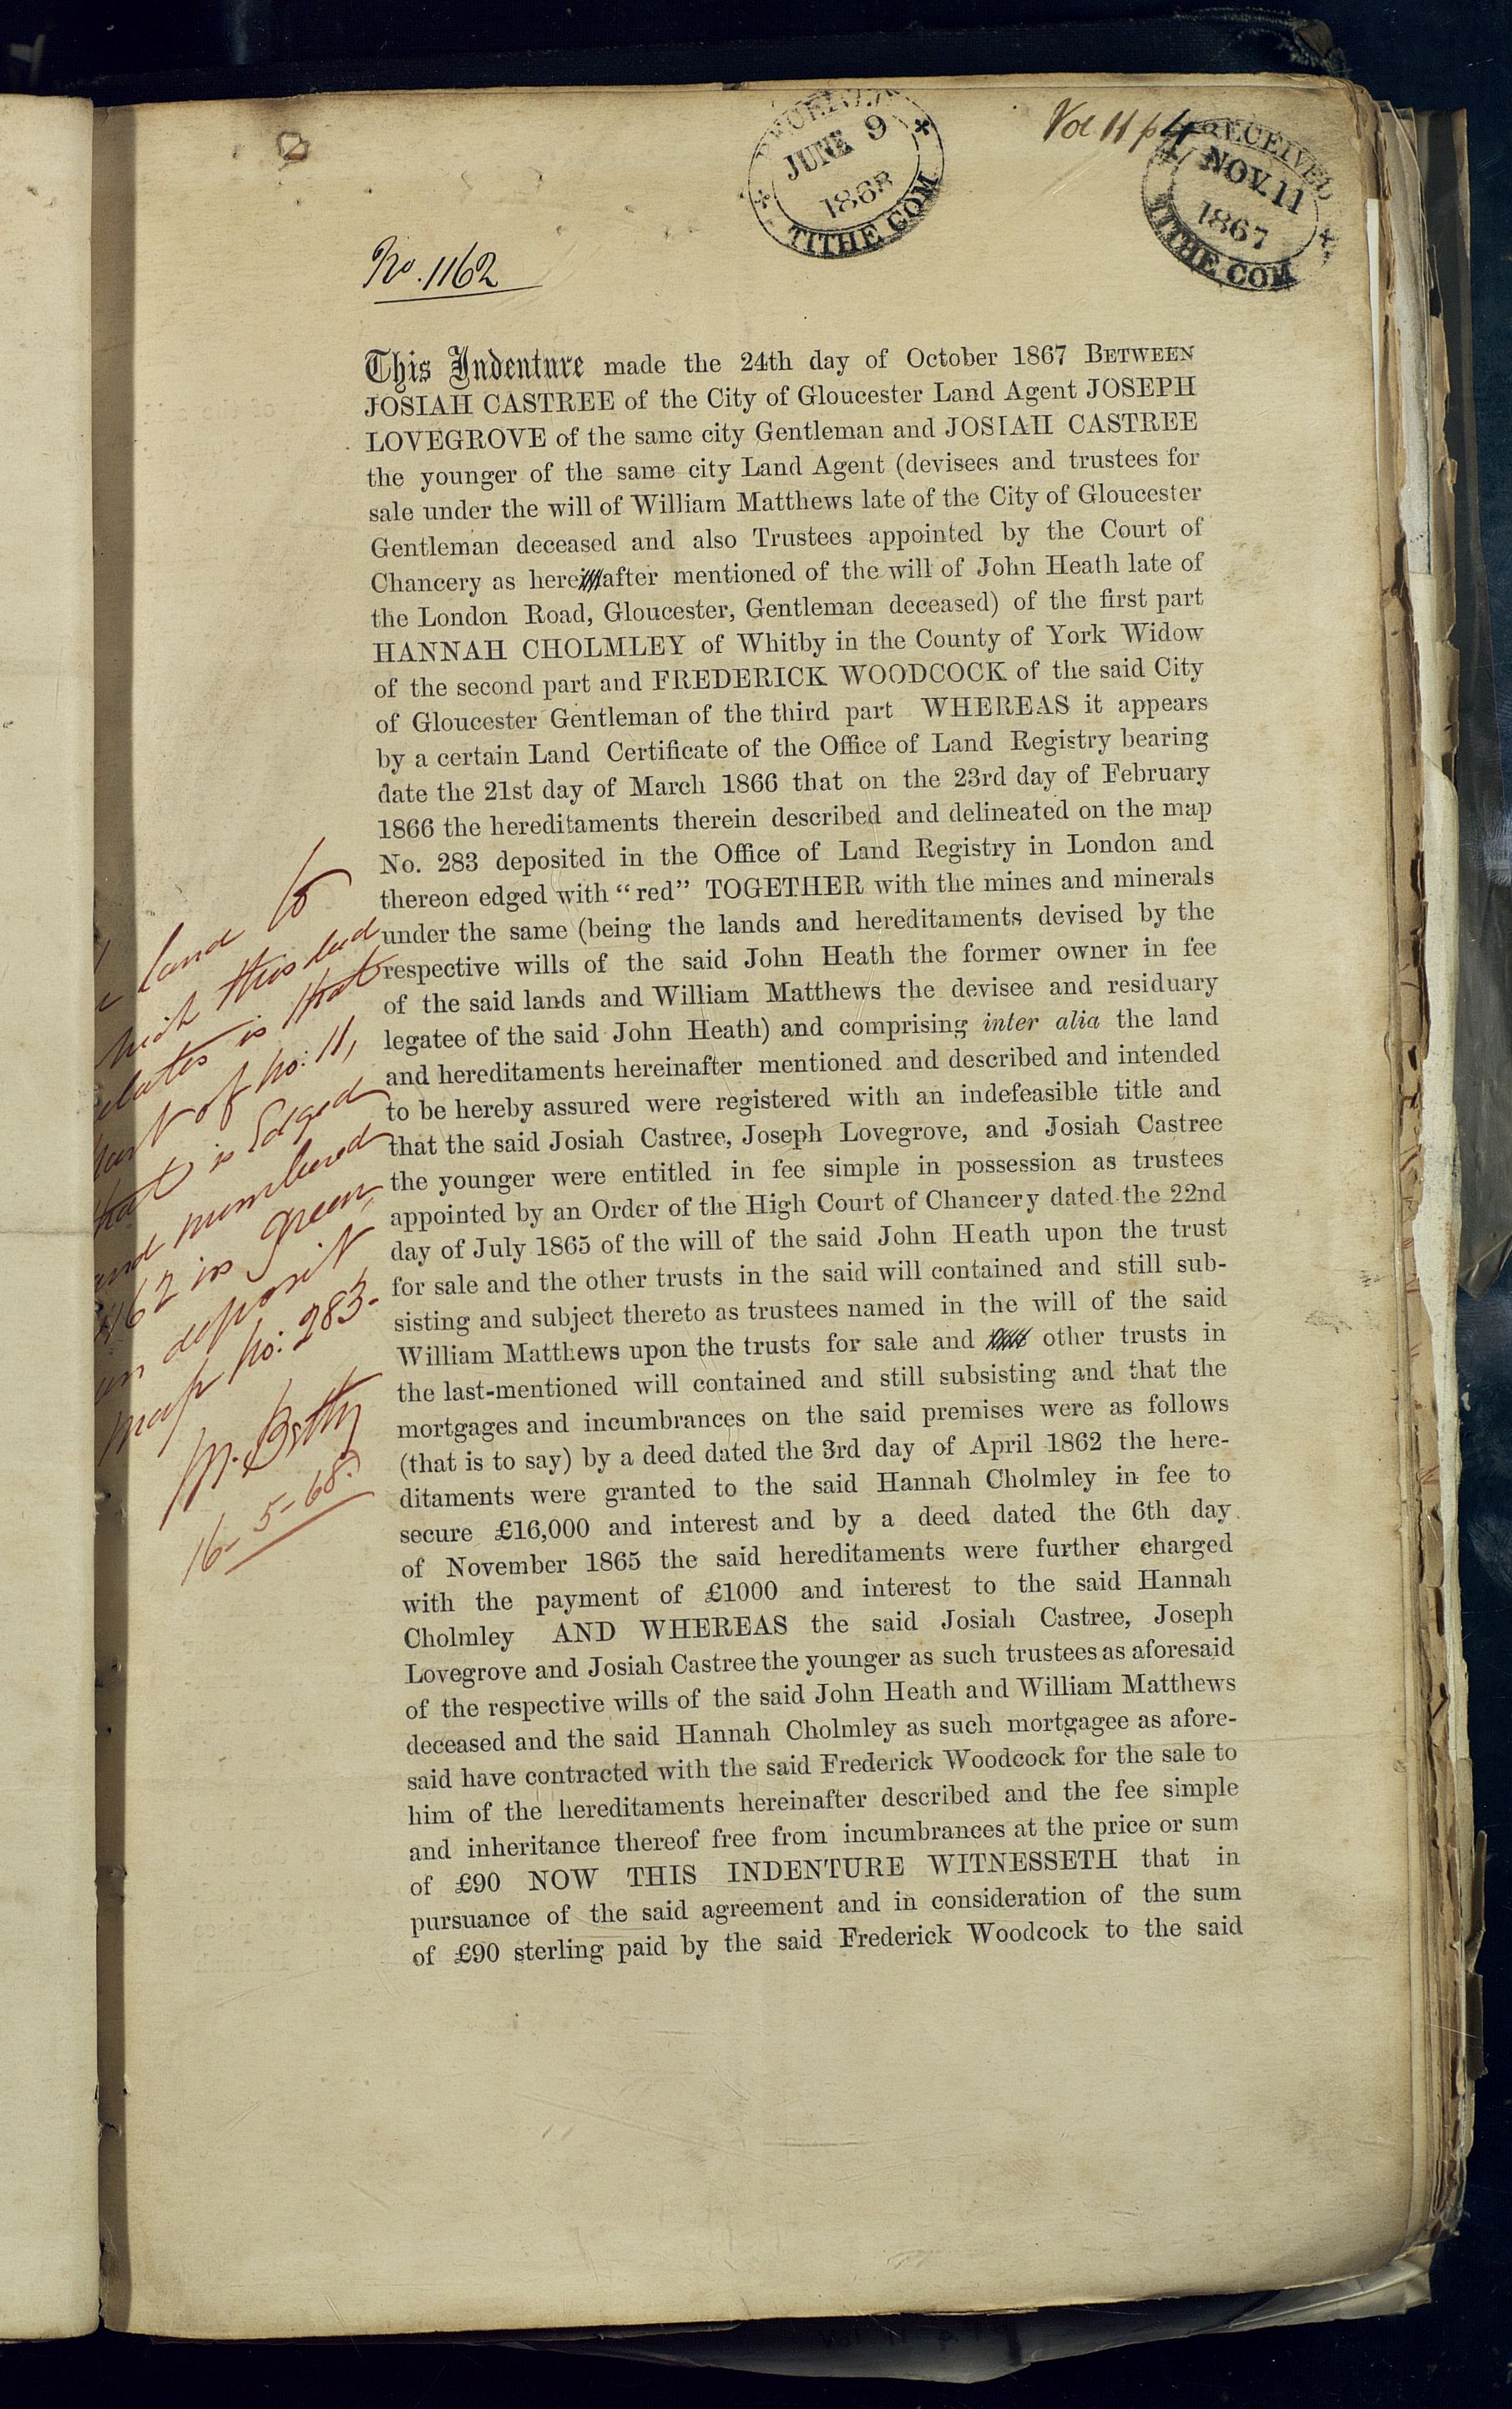 JUNE 9
1868
TITHE COM
Vol 11 p 4
RECEIVED
NOV. 11
1867
TITHE COM
No. 1162
This Indenture made the 24th day of October 1867 BETWEEN
JOSIAH CASTREE of the City of Gloucester Land Agent JOSEPH
LOVEGROVE of the same city Gentleman and JOSIAH CASTREE
the younger of the same city Land Agent (devisees and trustees for
sale under the will of William Matthews late of the City of Gloucester
Gentleman deceased and also Trustees appointed by the Court of
Chancery as hereinafter mentioned of the will of John Heath late of
the London Road, Gloucester, Gentleman deceased) of the first part
HANNAH CHOLMLEY of Whitby in the County of York Widow
of the second part and FREDERICK WOODCOCK of the said City
of Gloucester Gentleman of the third part WHEREAS it appears
by a certain Land Certificate of the Office of Land Registry bearing
date the 21st day of March 1866 that on the 23rd day of February
1866 the hereditaments therein described and delineated on the map
No. 283 deposited in the Office of Land Registry in London and
thereon edged with "red" TOGETHER with the mines and minerals
under the same (being the lands and hereditaments devised by the
respective wills of the said John Heath the former owner in fee
of the said lands and William Matthews the devisee and residuary
legatee of the said John Heath) and comprising inter alia the land
and hereditaments hereinafter mentioned and described and intended
to be hereby assured were registered with an indefeasible title and
that the said Josiah Castree, Joseph Lovegrove, and Josiah Castree
the younger were entitled in fee simple in possession as trustees
appointed by an Order of the High Court of Chancery dated the 22nd
day of July 1865 of the will of the said John Heath upon the trust
for sale and the other trusts in the said will contained and still sub-
sisting and subject thereto as trustees named in the will of the said
William Matthews upon the trusts for sale and other trusts in
the last-mentioned will contained and still subsisting and that the
mortgages and incumbrances on the said premises were as follows
(that is to say) by a deed dated the 3rd day of April 1862 the here-
ditaments were granted to the said Hannah Cholmley in fee to
secure £16,000 and interest and by a deed dated the 6th day
of November 1865 the said hereditaments were further charged
with the payment of £1000 and interest to the said Hannah
Cholmley AND WHEREAS the said Josiah Castree, Joseph
Lovegrove and Josiah Castree the younger as such trustees as aforesaid
of the respective wills of the said John Heath and William Matthews
deceased and the said Hannah Cholmley as such mortgagee as afore-
said have contracted with the said Frederick Woodcock for the sale to
him of the hereditaments hereinafter described and the fee simple
and inheritance thereof free from incumbrances at the price or sum
of £90 NOW THIS INDENTURE WITNESSETH that in
pursuance of the said agreement and in consideration of the sum
of £90 sterling paid by the said Frederick Woodcock to the said
land to
this deed
is that
part of No: 11,
that is Edged
and numbered
1162 in green,
on deposit
map No: 283.
16-5-68.